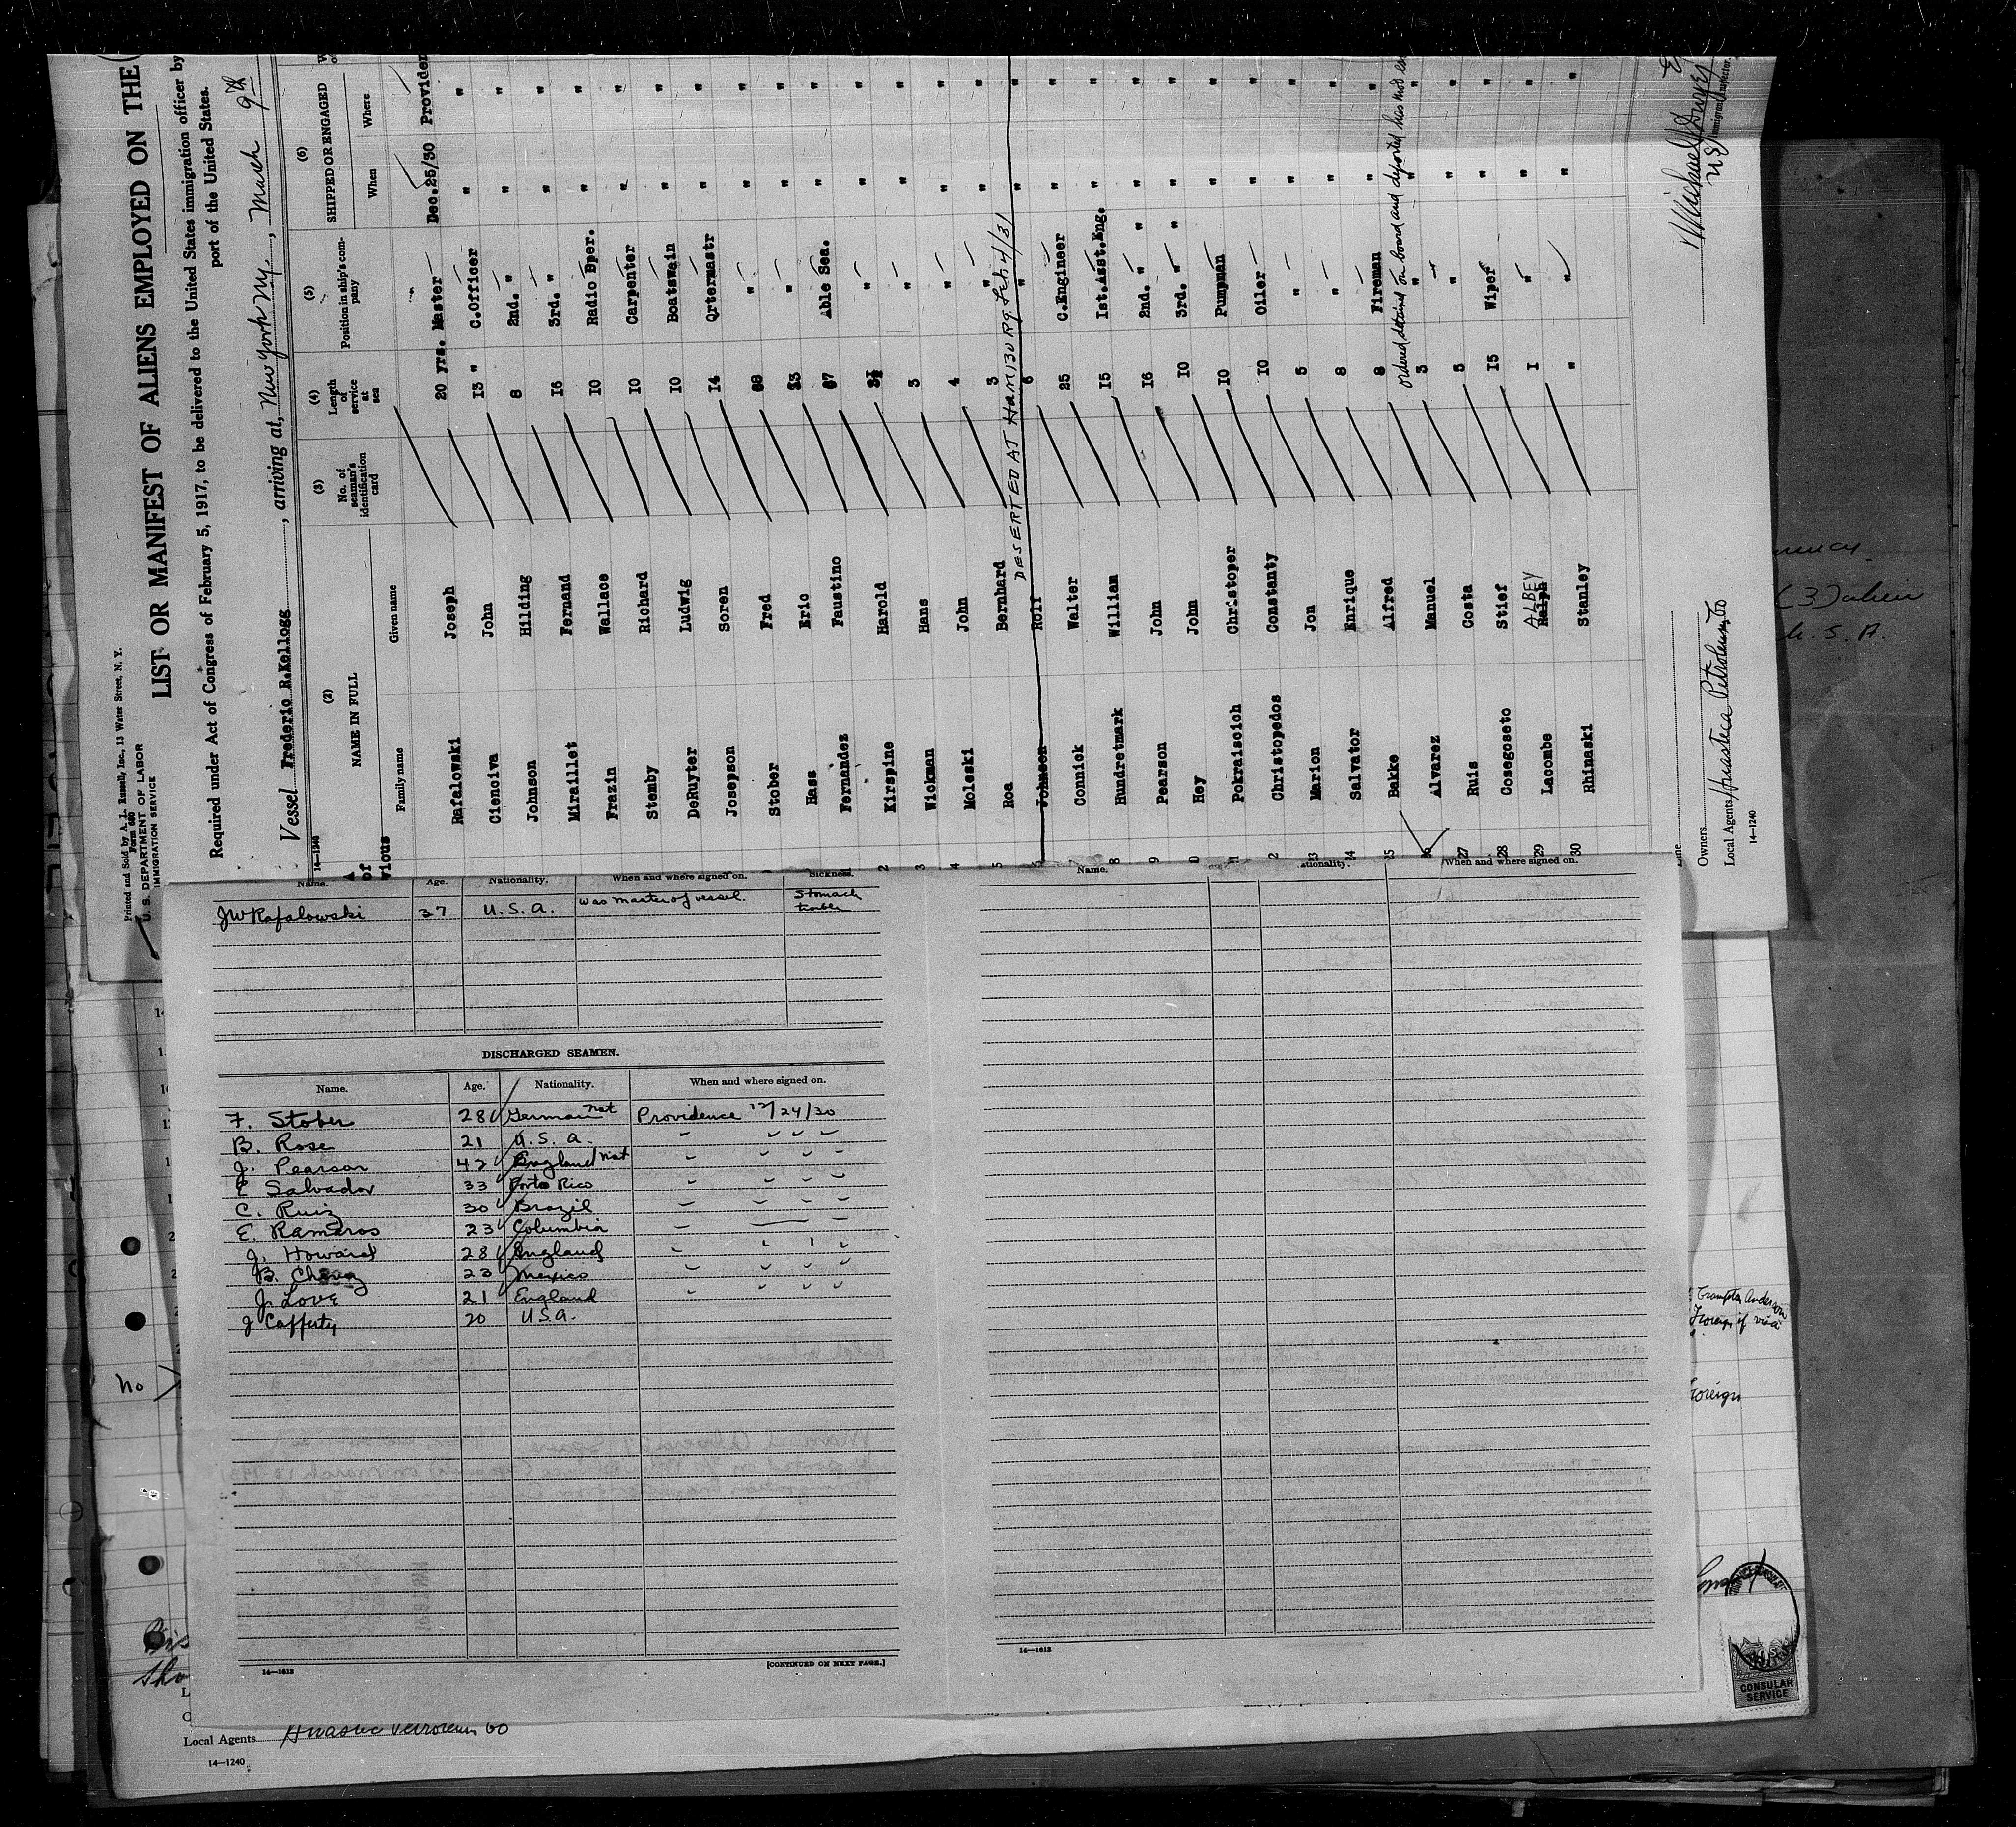 Printed and Sold by A. L. Russell, Inc., 13 Water Street, N. Y.
Form 680
U. S. DEPARTMENT OF LABOR
IMMIGRATION SERVICE
LIST OR MANIFEST OF ALIENS EMPLOYED ON THE
Required under Act of Congress of February 5, 1917, to be delivered to the United States immigration officer by
port of the United States.
Vessel Frederic R.Kellogg, arriving at, New York NY., March 9th
14—1240
(2) (3) (4) (5) (6)
NAME IN FULL No. of seaman's identification card Length of service at sea Position in ship's company SHIPPED OR ENGAGED
Family name Given name When Where
Rafalowski Joseph 20 yrs. Master Dec.25/30 Providen
Cienciva John 13 " C.Officer " "
Johnson Hilding 8 2nd. " " "
Miraillet Fernand 16 3rd. " " "
Frazin Wallace 10 Radio Oper. " "
Stemby Richard 10 Carpenter " "
DeRuyter Ludwig 10 Boatswain " "
Josepson Soren 14 Qrtermastr " "
Stober Fred 8 " " "
Hass Eric " " "
Fernandez Faustino Able Sea. " "
2 Kirspine Harold " " "
3 Wickman Hans 3 " " "
4 Moleski John 4 " " "
5 Roa Bernhard 3 " " "
Johnson Rolf 6 " " "
DESERTED AT HAMBURG. Feb 4/31
Connick Walter 25 C.Engineer " "
8 Hundretmark William 15 1st.Asst.Eng. " "
9 Pearson John 16 2nd. " " " "
0 Hey John 10 3rd. " " " "
1 Pokraiscich Christoper 10 Pumpman " "
2 Christopedos Constanty 10 Oiler " "
23 Marion Jon 5 " " "
24 Salvator Enrique 8 " " "
25 Bakke Alfred 8 Fireman " "
ordered detained on board and deported has not
26 Alvarez Manuel 3 " " "
27 Ruis Costa 5 " " "
28 Cosegoseto Stief 15 Wiper " "
ALBEY
29 Lacombe Ralph 1 " " "
30 Rhinaski Stanley " " " "
Michael J Dwyer
Immigrant Inspector.
Owners
Local Agents Huasteca Petroleum Co
14—1240
Name. Age. Nationality. When and where signed on. Sickness.
JW Rafalowski 37 U.S.A. was master of vessel. Stomach
DISCHARGED SEAMEN.
Name. Age. Nationality. When and where signed on.
F. Stober 28 German nat Providence 12/24/30
B. Rose 21 U.S.A.
J. Pearson 42 England nat
E Salvador 33 Porto Rico
C. Ruiz 30 Brazil
E. Ramiros 23 Columbia
J. Howard 28 England
B. Chavez 23 Mexico
J. Love 21 England
J Cafferty 20 U.S.A.
14—1612
[CONTINUED ON NEXT PAGE.]
Name. Nationality. When and where signed on.
14—1612
(3)
U. S. A.
Foreign
Foreign
no
Local Agents Huastec Petroleum Co
14—1240
CONSULAR
SERVICE